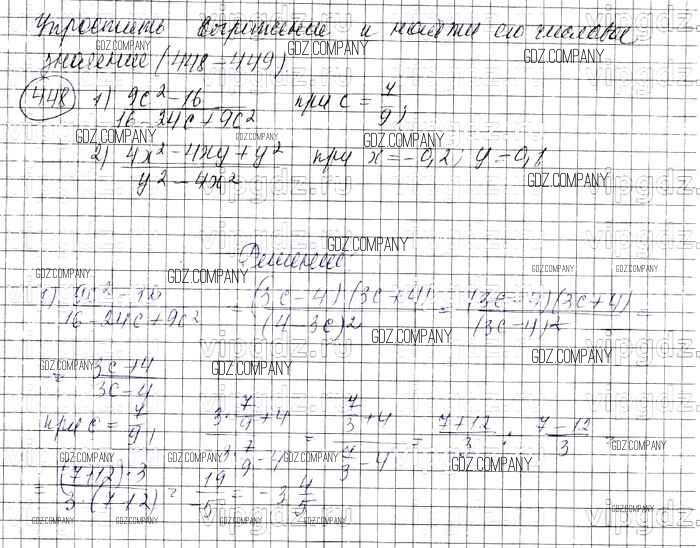 Упростить выражение и найти его числовое
значение (448-449).
448 1) (9c² - 16)/(16 - 24c + 9c²) при c = 7/9;
2) (4x² - 4xy + y²)/(y² - 4x²) при x = -0,2; y = 0,1.
Решение
1) (9c² - 16)/(16 - 24c + 9c²) = ((3c - 4)(3c + 4))/((4 - 3c)²) = ((3c - 4)(3c + 4))/((3c - 4)²) =
= (3c + 4)/(3c - 4)
при c = 7/9, (3 · 7/9 + 4)/(3 · 7/9 - 4) = (7/3 + 4)/(7/3 - 4) = (7 + 12)/3 : (7 - 12)/3 =
= ((7 + 12) · 3)/(3 · (7 - 12)) = 19/-5 = -3 4/5
GDZ.COMPANY
vipgdz.ru